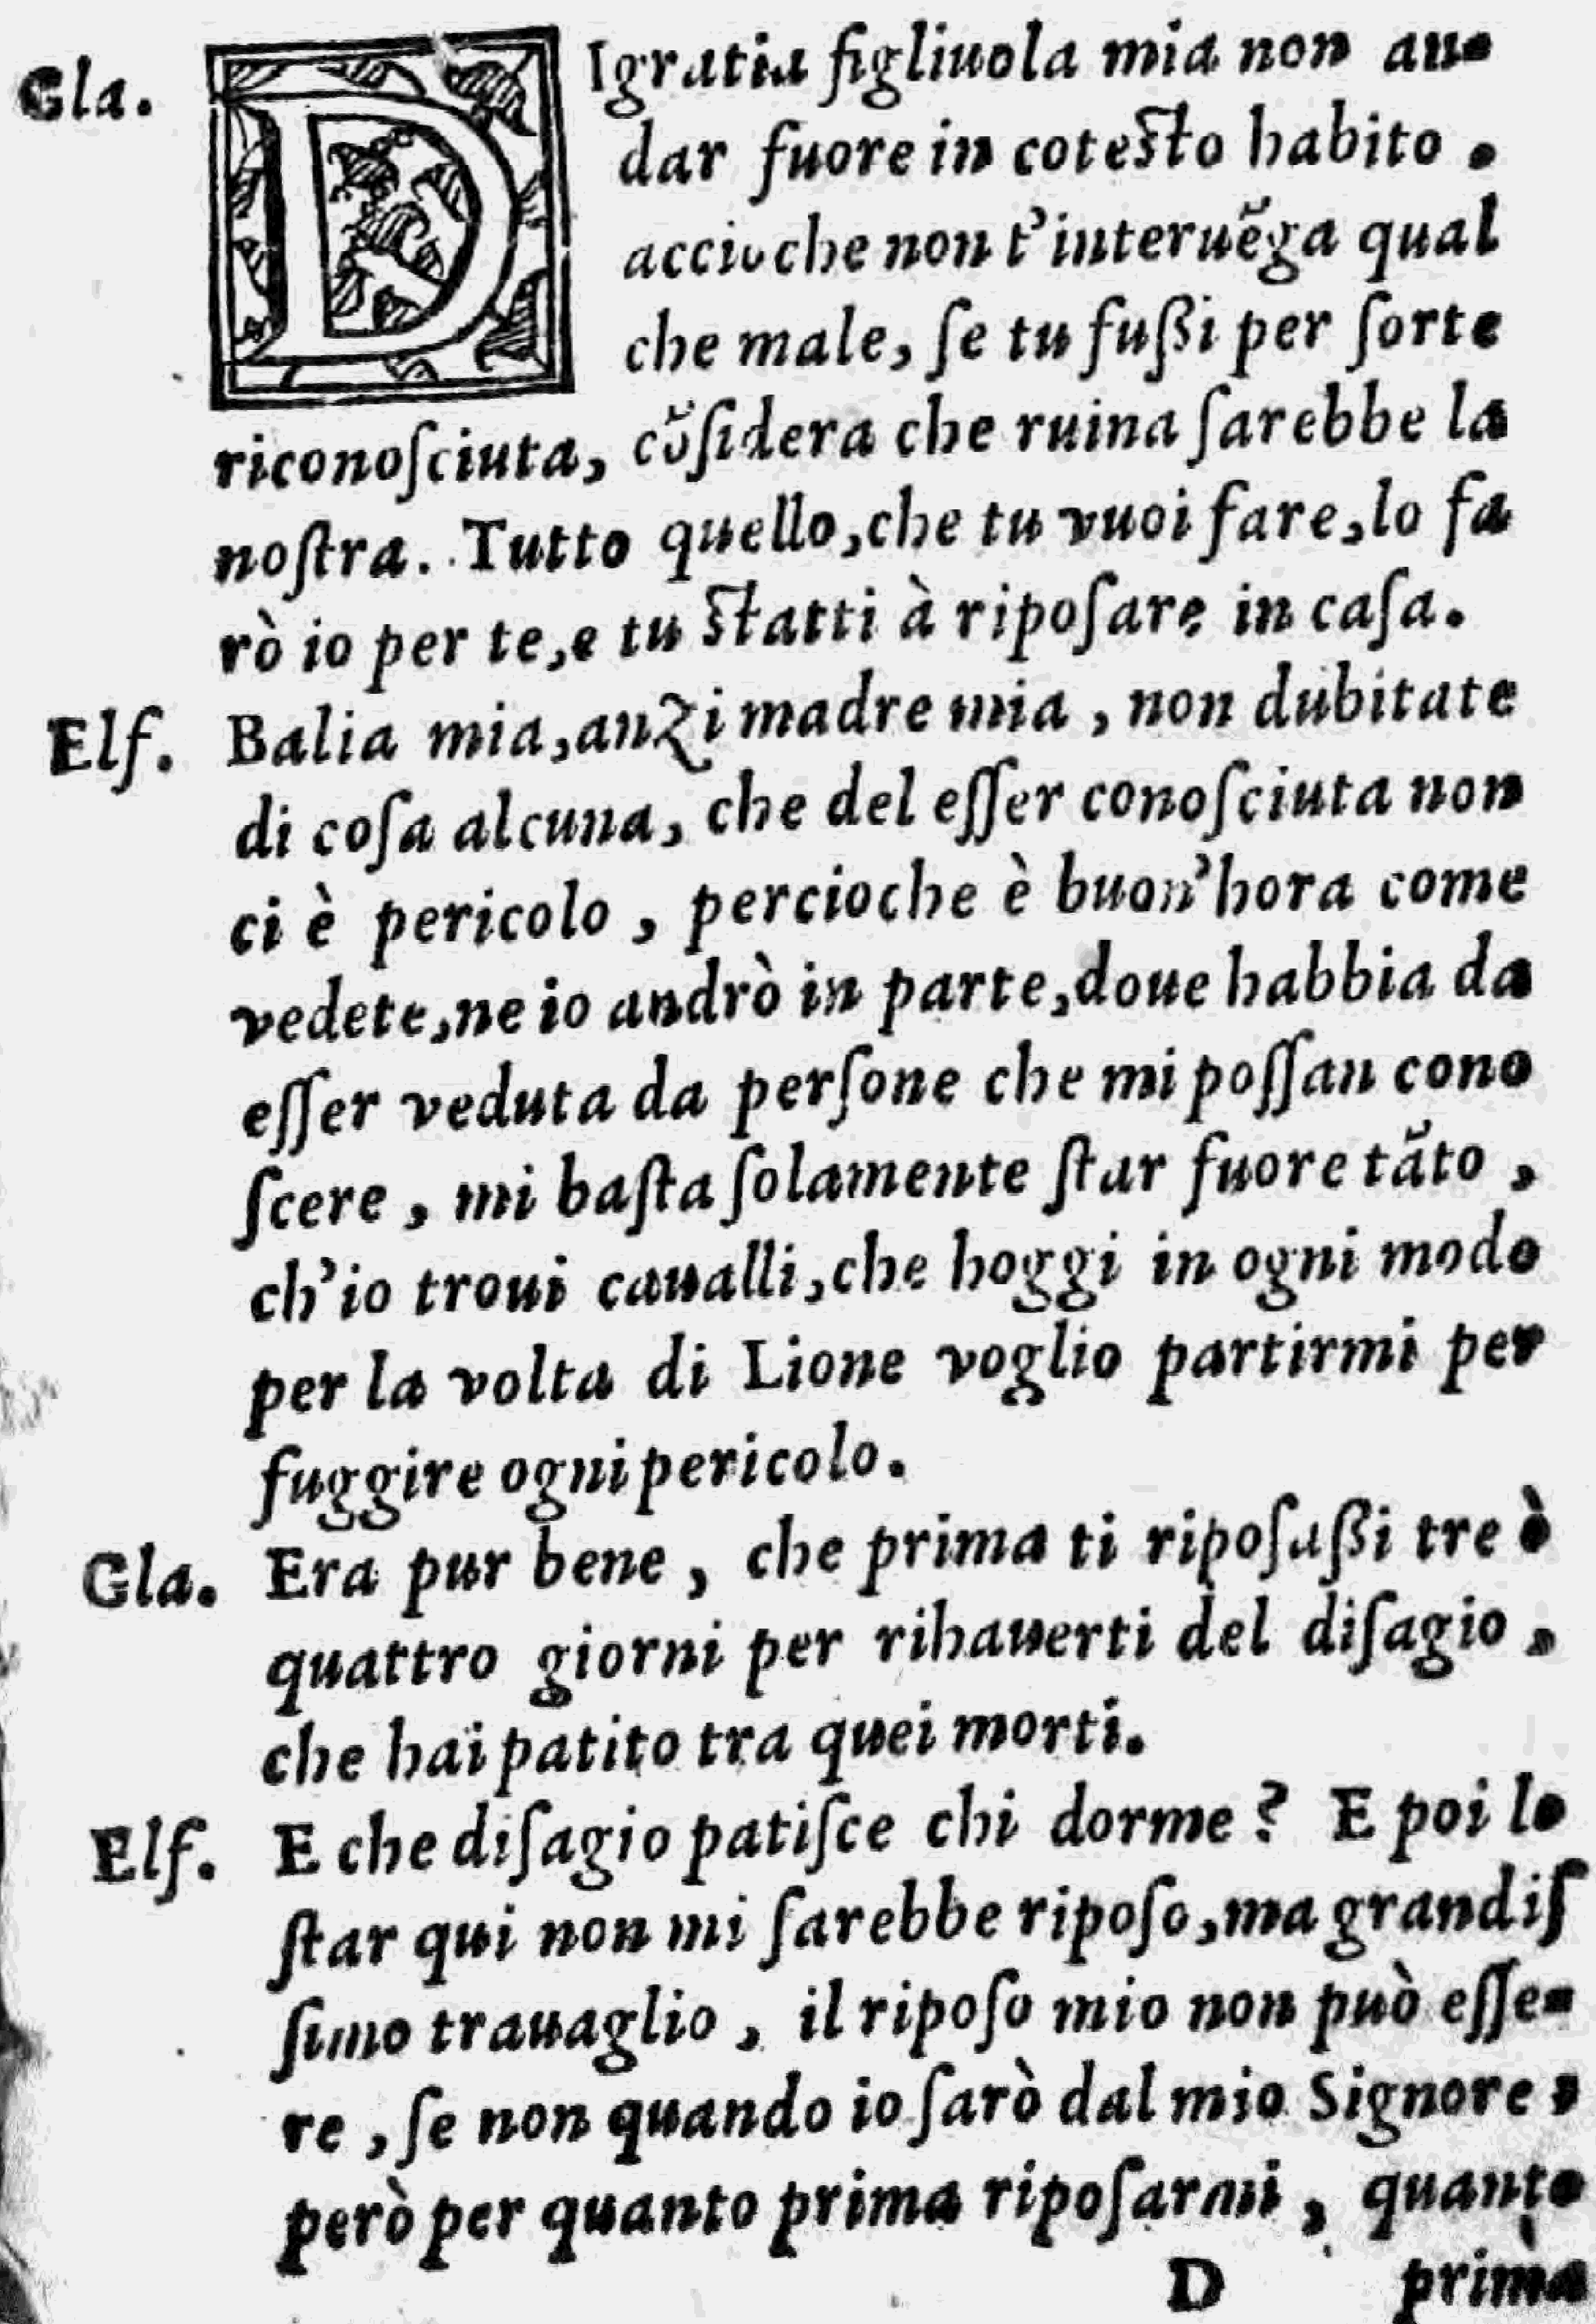 Gla. DIgratia figliuola mia non an-
dar fuore in cotesto habito,
accioche non t'interuẽga qual
che male, ſe tu fußi per ſorte
riconoſciuta, cõſidera che ruina ſarebbe la
noſtra. Tutto quello, che tu vuoi fare, lo fa
rò io per te, e tu statti à ripoſare in caſa.
Elſ. Balia mia, anzi madre mia, non dubitate
di coſa alcuna, che del eſſer conoſciuta non
ci è pericolo, percioche è buon'hora come
vedete, ne io andrò in parte, doue habbia da
eſſer veduta da perſone che mi poſſan cono
ſcere, mi baſta ſolamente ſtar fuore tãto,
ch'io troui caualli, che hoggi in ogni modo
per la volta di Lione voglio partirmi per
fuggire ogni pericolo.
Gla. Era pur bene, che prima ti ripoſaßi tre ò
quattro giorni per rihauerti del diſagio,
che hai patito tra quei morti.
Elſ. E che diſagio patiſce chi dorme? E poi lo
ſtar qui non mi ſarebbe ripoſo, ma grandiſ
ſimo trauaglio, il ripoſo mio non può eſſe-
re, ſe non quando io ſarò dal mio Signore,
però per quanto prima ripoſarmi, quanto
D prima